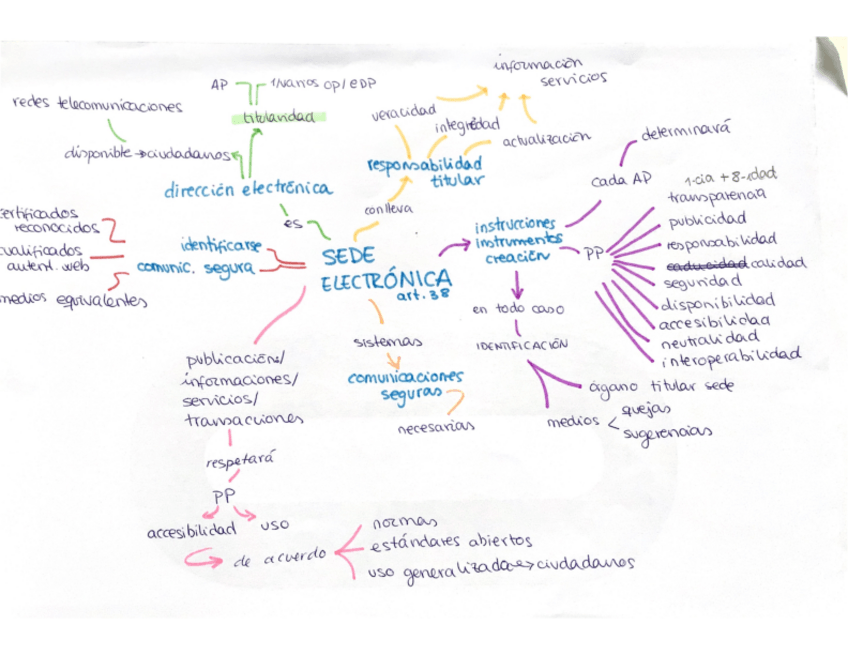 información
servicios
AP
1/varios OP/EDP
redes telecomunicaciones
titularidad
veracidad
integridad
actualización
determinará
disponible → ciudadanos
responsabilidad
titular
cada AP
1-cia + 8-idad
dirección electrónica
conlleva
transparencia
publicidad
responsabilidad
caducidad calidad
seguridad
disponibilidad
accesibilidad
neutralidad
interoperabilidad
es
instrucciones
instrumentos
creación
PP
certificados
reconocidos
cualificados
autent. web
medios equivalentes
identificarse
comunic. segura
SEDE
ELECTRÓNICA
art. 38
en todo caso
IDENTIFICACIÓN
órgano titular sede
medios
quejas
sugerencias
sistemas
comunicaciones
seguras
necesarias
publicación/
informaciones/
servicios/
transacciones
respetará
PP
accesibilidad
uso
de acuerdo
normas
estándares abiertos
uso generalizado → ciudadanos